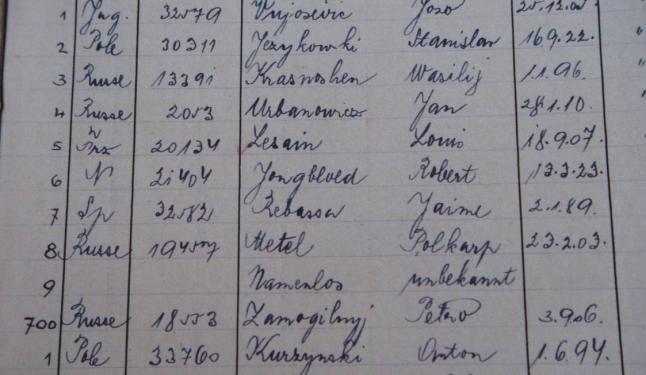 1 Jug. 32579 Vujosevic Joso 25.12.05.
2 Pole 30311 Jezykowski Stanislav 16.9.22. "
3 Russe 13391 Krasnoshen Wasilij 1.1.96. "
4 Russe 2053 Urbanowicz Jan 28.1.10. "
5 Frz 20134 Lesain Louis 18.9.07.
6 N 21404 Jongbloed Robert 13.3.23.
7 Sp 32582 Rebassa Jaime 2.1.89.
8 Russe 19457 Metel Polkarp 23.2.03.
9 Namenlos unbekannt
700 Russe 18553 Zamogilnyj Petro 3.9.06.
1 Pole 33760 Kurzynski Anton 1.6.94.